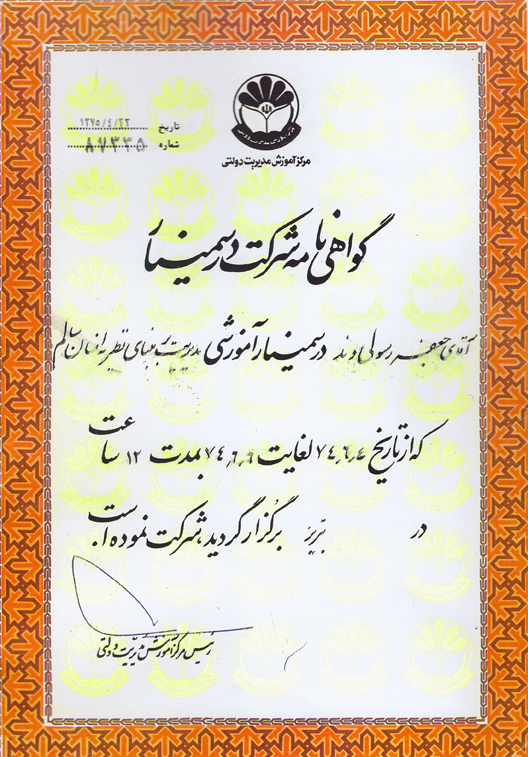 تاریخ ۱۳۷۵/۴/۲۳
شماره ۸۷۳۳۵
مرکز آموزش مدیریت دولتی
گواهی نامه شرکت در سمینار
آقای جعفر رسولی وند در سمینار آموزشی مدیریت بر مبنای نظریه انسان سالم
که از تاریخ ۷۴٫۶٫۴ لغایت ۷۴٫۶٫۹ بمدت ۱۲ ساعت
در تبریز برگزار گردید، شرکت نموده است.
رئیس مرکز آموزش مدیریت دولتی